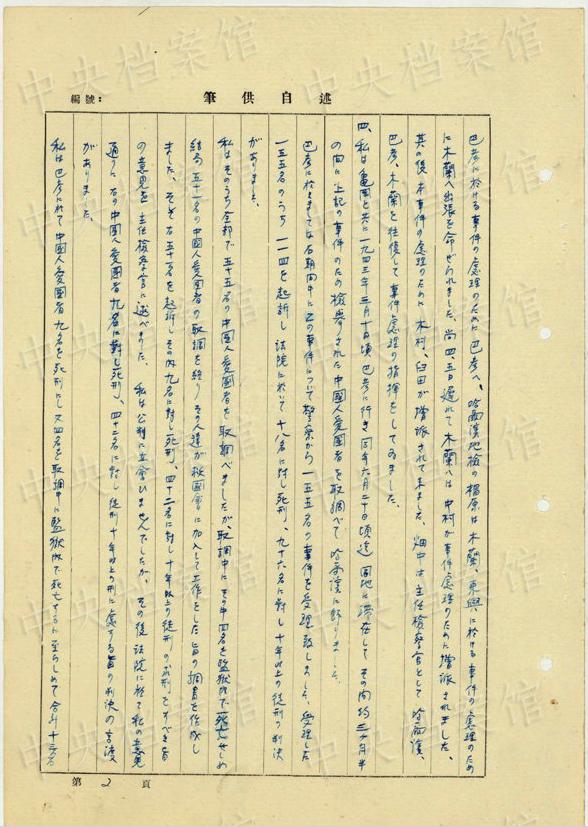 編號：
筆供自述
巴彥に於ける事件の處理のために巴彥へ、哈爾濱地檢の楊原は木蘭、東興に於ける事件の處理のため
に木蘭へ出張を命ぜられました、尚四、五日遅れて木蘭へは中村が事件處理のために増派されました。
其の後本事件の處理のために木村、臼田が増派されて来ました、畑中は主任檢察官として哈爾濱、
巴彥、木蘭を往復して事件處理の指揮をしてゐました。
四、私は亀岡と共に一九四三年三月十日頃巴彥に行き同年六月二十日頃迄同地に滞在して、その間約三ヶ月半
の間に上記の事件のため檢擧された中國人愛國者を取調べて哈爾濱に歸りました、
巴彥に於きましては右期間中にこの事件について警察から一五五名の事件を受理致しました、受理した
一五五名のうち一一四を起訴し法院に於いて十八名に対し死刑、九十六名に対し十年以上の徒刑の判決
がありました。
私はそのうち全部で五十五名の中國人愛國者を取調べましたが、取調中にその中四名を監獄内で死亡せしめ
結局五十一名の中國人愛國者の取調を終りその人達が救國會に加入して工作をした旨の調書を作成し
ました、そして右五十一名を起訴し、その内九名に対し死刑、四十二名に対し十年以上の徒刑の求刑をすべき旨
の意見を主任檢察官に述べました、私は公判に立會ひませんでしたが、その後法院に於て私の意見
通りに右の中國人愛國者九名に對し死刑、四十二名に対し徒刑十年以上の刑に處する旨の判決の言渡
がありました、
私は巴彥に於て中國人愛國者九名を死刑にし又四名を取調中に監獄内で死亡するに至らしめて合計十三名
第 2 頁
中央档案馆